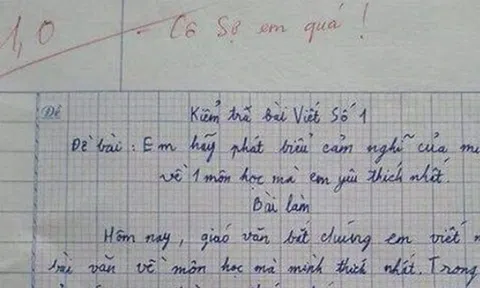 1,0
- Cô Sợ em quá !
Đề
Kiểm trã bài Viết Số 1
Đề bài : Em hãy phát biểu cảm nghĩ của
về 1 môn học mà em yêu thích nhất.
Bài làm
Hôm nay, giáo văn bắt chúng em viết
bài văn về môn học mà mình thích nhất. Trong